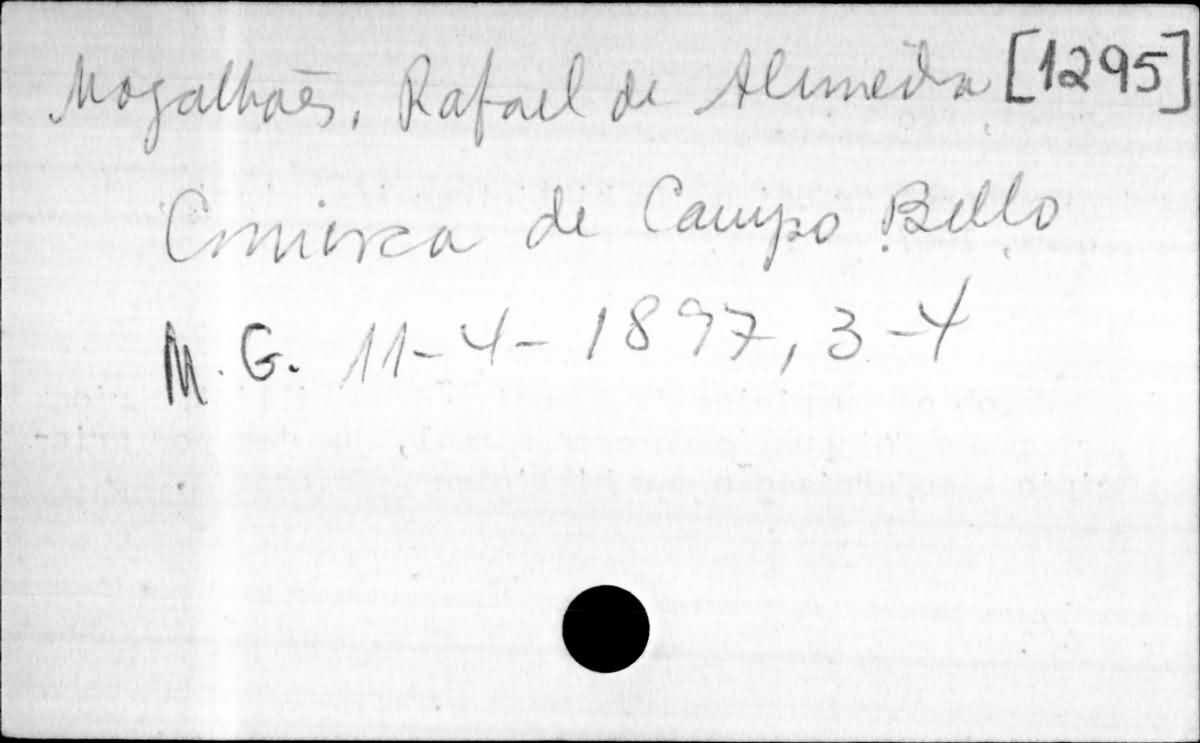 Magalhães, Rafael de Almeida [1295]
Comarca de Campo Bello
M. G. 11-4-1897, 3-4